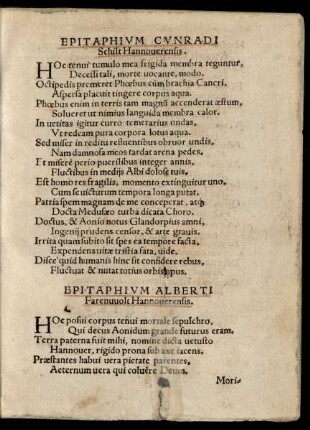 EPITAPHIVM CVNRADI
Schilt Hannouerensis.
HOc tenui tumulo mea frigida membra teguntur,
Decessi tali, morte uocante, modo.
Octipedis premeret Phœbus cũm brachia Cancri,
Aspersa placuit tingere corpus aqua.
Phœbus enim in terris tam magnũ accenderat æstum,
Solueret ut nimius languida membra calor.
In uetitas igitur curro temerarius undas,
Vt redeam pura corpora lotus aqua.
Sed miser in reditu refluentibus obruor undis,
Nam damnosa meos tardat arena pedes.
Et miserè perio puerilibus integer annis,
Fluctibus in medijs Albi dolose tuis.
Est homo res fragilis, momento extinguitur uno,
Cum se uicturum tempora longa putat.
Patria spem magnam de me conceperat, atq;
Docta Medusæo turba dicata Choro.
Doctus, & Aonio notus Glandorpius amni,
Ingenij prudens censor, & arte grauis.
Irrita quam subitò sit spes ea tempore facta,
Expendens uitæ tristia fata, uide.
Disce quid humanis hinc sit confidere rebus,
Fluctuat & nutat totius orbis opus.
EPITAPHIVM ALBERTI
Farenuuolt Hannouerensis.
HOc posui corpus tenui mortale sepulchro,
Qui decus Aonidum grande futurus eram.
Terra paterna fuit mihi, nomine dicta uetusto
Hannouer, rigido prona sub axe iacens.
Præstantes habui uera pietate parentes,
Aeternum uera qui coluêre Deum.
Mori-